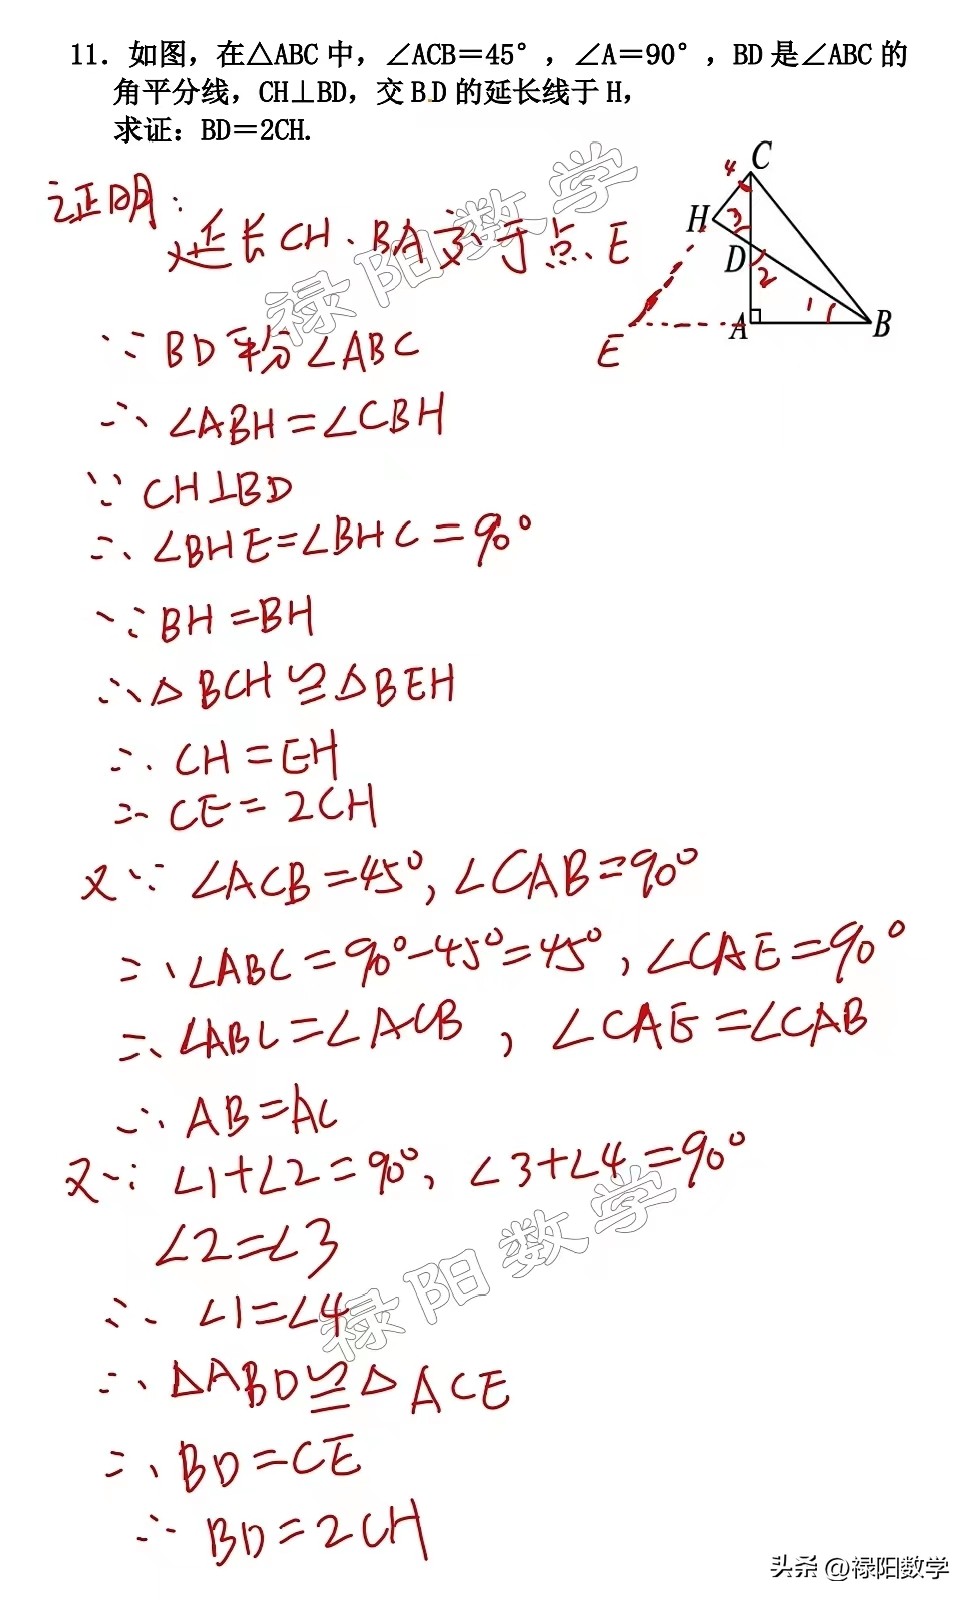 11. 如图，在△ABC 中，∠ACB＝45°，∠A＝90°，BD 是∠ABC 的
角平分线，CH⊥BD，交 BD 的延长线于 H，
求证：BD＝2CH.
证明：
延长CH、BA交于点E
C
4
H
3
D
2
1
A
B
E
∵ BD平分∠ABC
∴ ∠ABH=∠CBH
∵ CH⊥BD
∴ ∠BHE=∠BHC=90°
∵ BH=BH
∴ △BCH≌△BEH
∴ CH=EH
∴ CE=2CH
又∵ ∠ACB=45°,∠CAB=90°
∴ ∠ABC=90°-45°=45°,∠CAE=90°
∴ ∠ABC=∠ACB, ∠CAE=∠CAB
∴ AB=AC
又∵ ∠1+∠2=90°, ∠3+∠4=90°
∠2=∠3
∴ ∠1=∠4
∴ △ABD≌△ACE
∴ BD=CE
∴ BD=2CH
禄阳数学
禄阳数学
头条 @禄阳数学